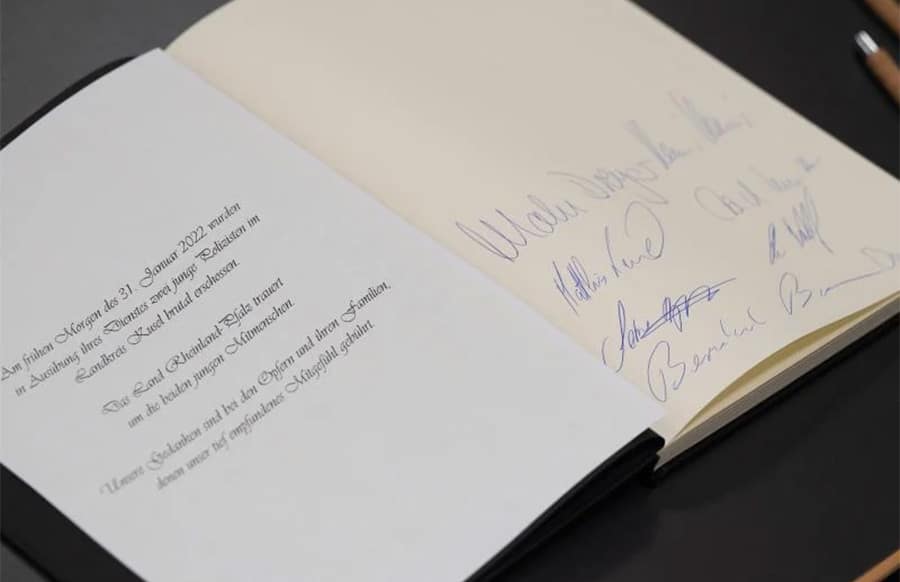 Am frühen Morgen des 31. Januar 2022 wurden
in Ausübung ihres Dienstes zwei junge Polizisten im
Landkreis Kusel brutal erschossen.
Das Land Rheinland-Pfalz trauert
um die beiden jungen Mitmenschen.
Unsere Gedanken sind bei den Opfern und ihren Familien,
denen unser tief empfundenes Mitgefühl gebührt.
Malu Dreyer
Bernhard